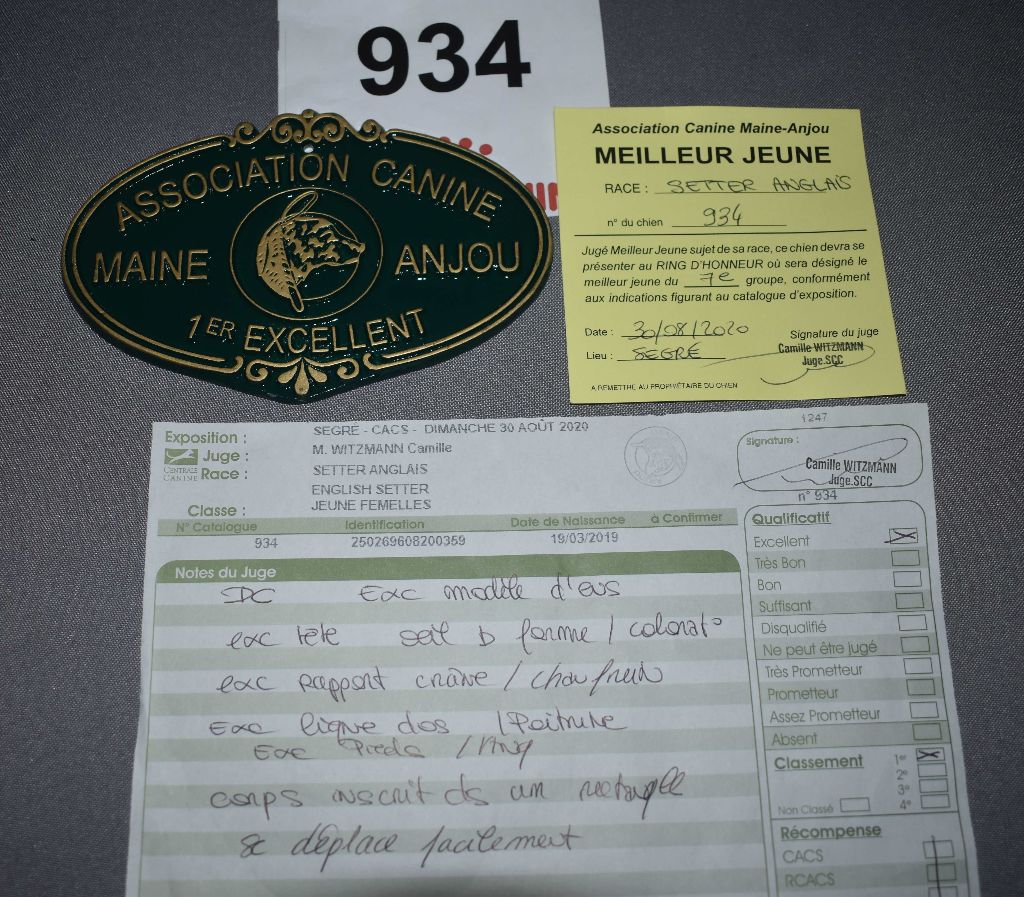 934
ASSOCIATION CANINE
MAINE ANJOU
1ER EXCELLENT
Association Canine Maine-Anjou
MEILLEUR JEUNE
RACE : SETTER ANGLAIS
n° du chien 934
Jugé Meilleur Jeune sujet de sa race, ce chien devra se
présenter au RING D'HONNEUR où sera désigné le
meilleur jeune du 7e groupe, conformément
aux indications figurant au catalogue d'exposition.
Date : 30/08/2020
Signature du juge
Lieu : SEGRÉ
Camille WITZMANN
Juge.SCC
A REMETTRE AU PROPRIÉTAIRE DU CHIEN
1247
Exposition : SEGRÉ - CACS - DIMANCHE 30 AOÛT 2020
Juge : M. WITZMANN Camille
CENTRALE CANINE
Race : SETTER ANGLAIS
ENGLISH SETTER
Classe : JEUNE FEMELLES
Signature :
Camille WITZMANN
Juge.SCC
n° 934
N° Catalogue Identification Date de Naissance à Confirmer
934 250269608200359 19/03/2019
Notes du Juge
Exc modèle
exc tête forme /
exc rapport crâne / chanfrein
Exc ligne dos / Poitrine
Exc Pieds /
corps inscrit ds un rectangle
se déplace facilement
Qualificatif
Excellent
Très Bon
Bon
Suffisant
Disqualifié
Ne peut être jugé
Très Prometteur
Prometteur
Assez Prometteur
Absent
Classement 1er
2e
3e
Non Classé 4e
Récompense
CACS
RCACS